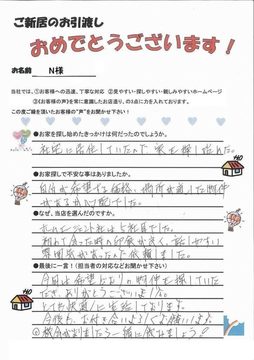 ご新居のお引渡し
おめでとうございます！
お名前 N様
当社では、①お客様への迅速、丁寧な対応 ②見やすい・探しやすい・親しみやすいホームページ
③《お客様の声》を常に意識したお店造り、の3点に力を入れております。
この度ご縁を頂いたお客様の“声”をお聞かせ下さい！
●お家を探し始めたきっかけは何だったのでしょうか。
社宅に居住していたので家を探し始めた。
●お家探しで不安な事はありましたか。
自分が希望する価格、場所が適した物件
があるか心配でした
●なぜ、当店を選んだのですか。
初めて会った時の印象が良く、話しやすい
雰囲気があったため依頼しました。
●最後に一言！（担当者の対応などお聞かせ下さい）
今回は希望どおりの物件を探していた
だきありがとうございました。
とても快適に生活しております。
今後も、お付き合いよろしくお願いします
機会がありましたら一緒に飲みましょう！